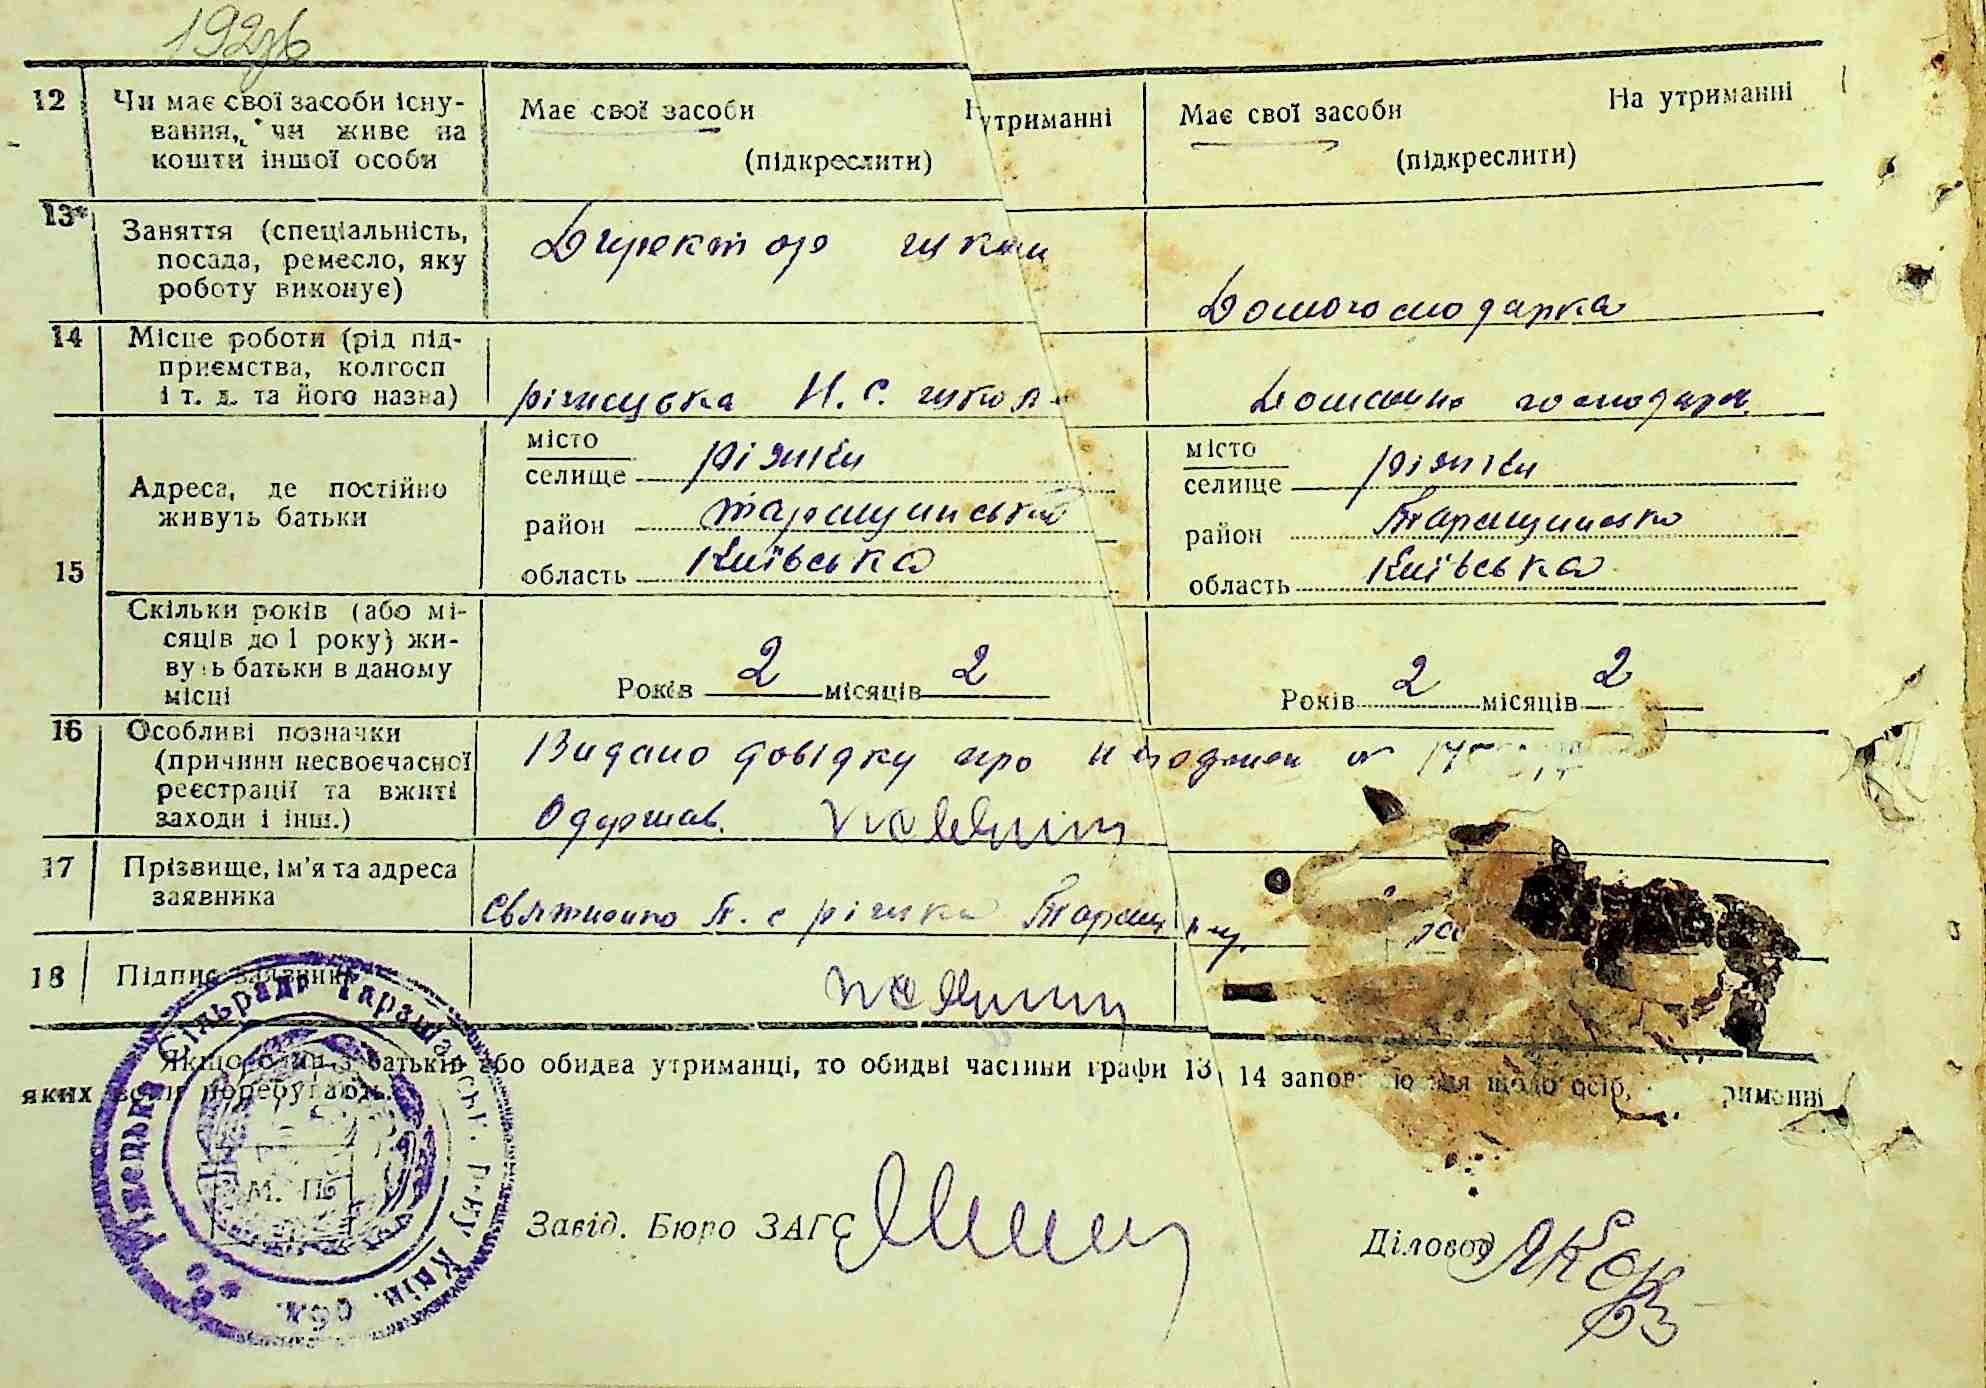 12 Чи має свої засоби існу-
вання, чи живе на
кошти іншої особи
Має свої засоби
утриманні
(підкреслити)
Має свої засоби На утриманні
(підкреслити)
13* Заняття (спеціальність,
посада, ремесло, яку
роботу виконує)
Директор школи
Домогосподарка
14 Місце роботи (рід під-
приємства, колгосп
і т. д. та його назва)
ріжецька Н. С. школа
Домашнє господар.
15 Адреса, де постійно
живуть батьки
місто
селище ріжки
район таращанський
область Київська
місто
селище ріжки
район
область Київська
Скільки років (або мі-
сяців до 1 року) жи-
вуть батьки в даному
місці
Років 2 місяців 2
Років 2 місяців 2
16 Особливі позначки
(причини несвоєчасної
реєстрації та вжиті
заходи і інш.)
Видано довідку про
Одержав.
17 Прізвище, ім'я та адреса
заявника
с ріжки Таращ
18 Підпис заявника
Якщо один з батьків або обидва утриманці, то обидві частини графи 13 і 14 щодо осіб,
яких вони перебувають.
Ріжецька Сільрада Таращанськ. р-ну Київ. Обл.
М. П.
Завід. Бюро ЗАГС
Діловод